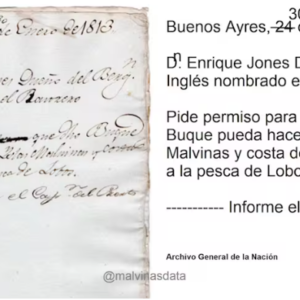 de Enero de 1813
Dueño del Berg.n
que dho Buque
Islas Malvinas y costa
de Lobos.
el Cap.n del Puerto
30
Buenos Ayres, 24
Dn. Enrique Jones D
Inglés nombrado e
Pide permiso para
Buque pueda hace
Malvinas y costa de
a la pesca de Lobo
---------- Informe el
Archivo General de la Nación
@malvinasdata